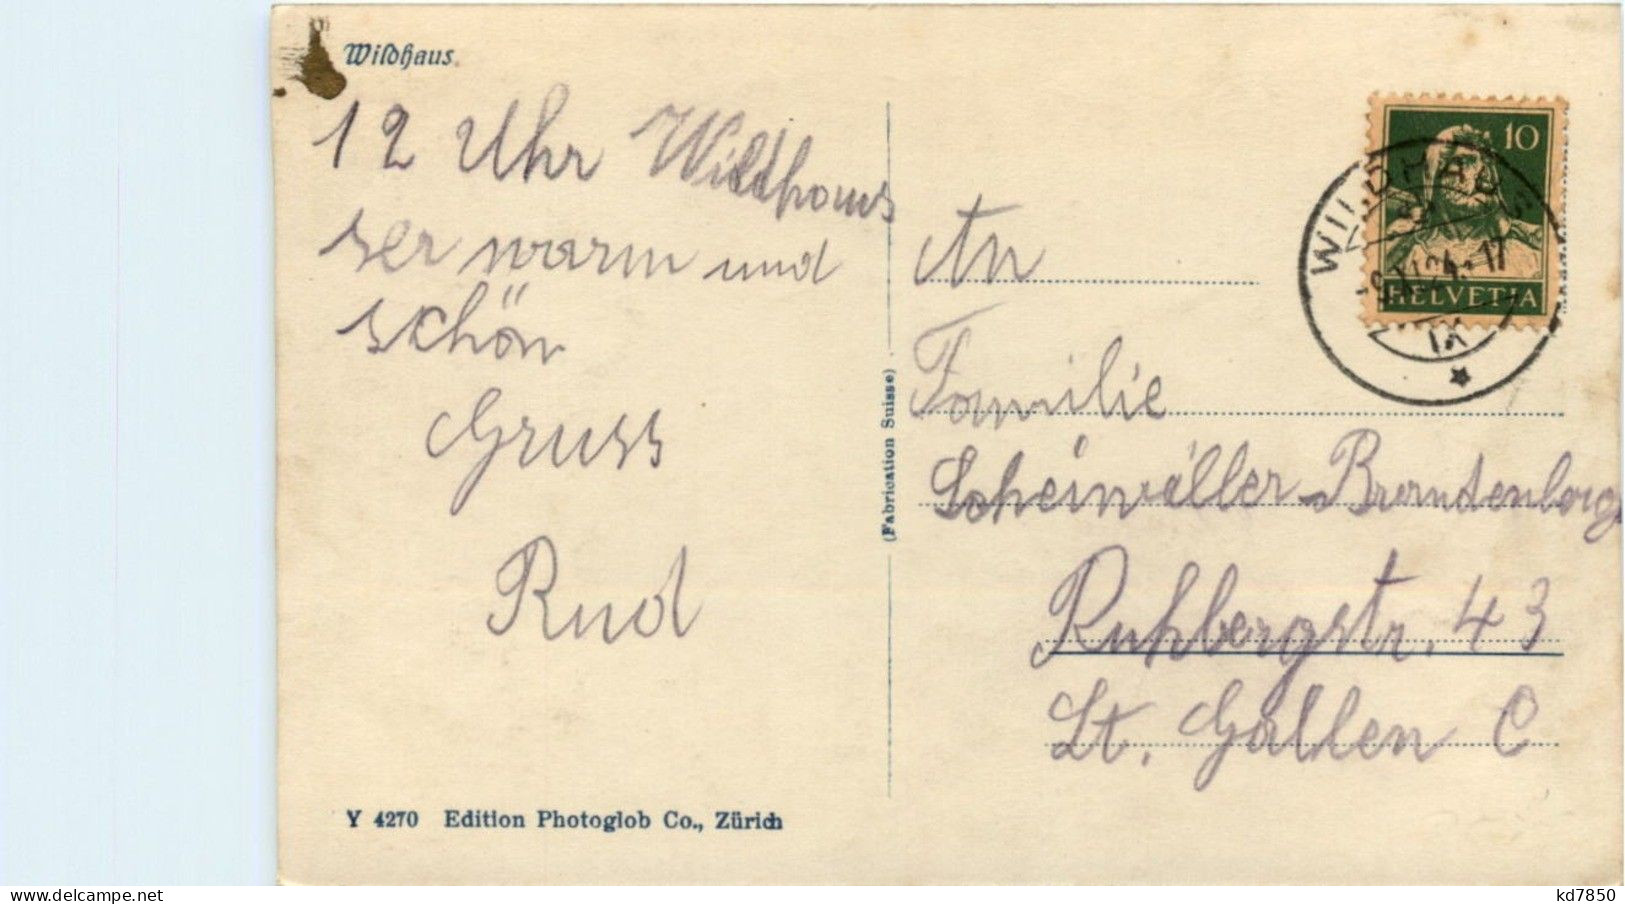 Wildhaus
12 Uhr Wildhaus
ser warm und
schön
Gruss
Rud
Y 4270 Edition Photoglob Co., Zürich
(Fabrication Suisse)
10
HELVETIA
WILDHAUS
IX
An
Familie
Scheiwiller-Brandenberg
Ruhbergstr. 43
St. Gallen C
www.delcampe.net
kd7850